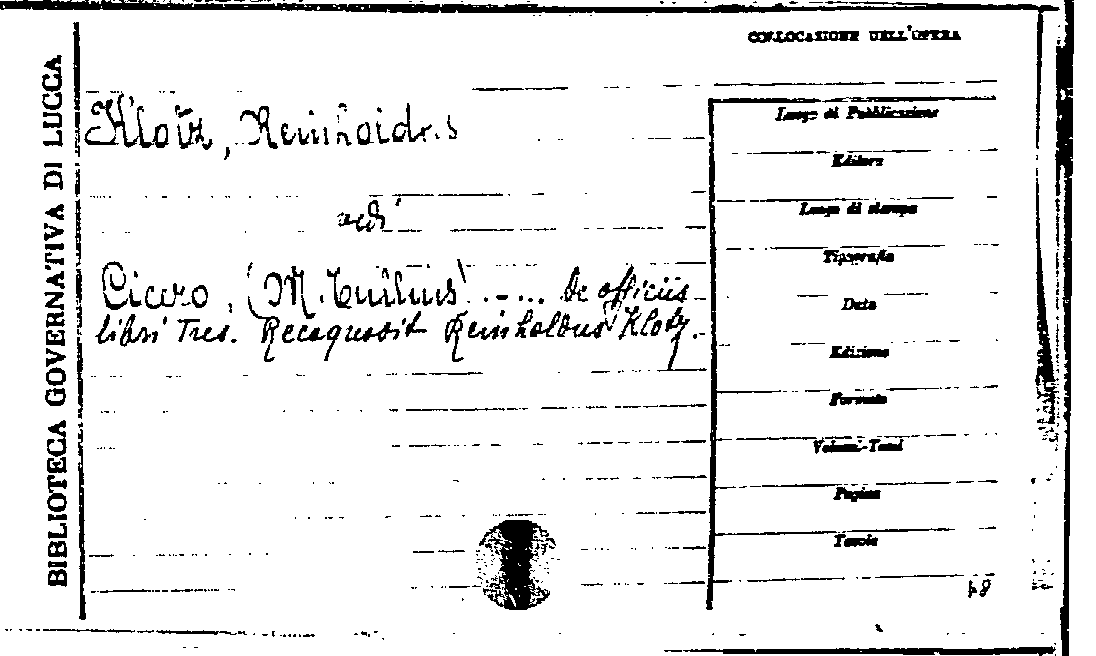 COLLOCAZIONE DELL'OPERA
BIBLIOTECA GOVERNATIVA DI LUCCA
Klotz, Reinholdus
vedi
Cicero, (M. Tullius) ..... De officiis
libri Tres. Recognovit Reinholdus Klotz.
Luogo di Pubblicazione
Editore
Luogo di stampa
Tipografia
Data
Edizione
Formato
Volumi-Tomi
Pagine
Tavole